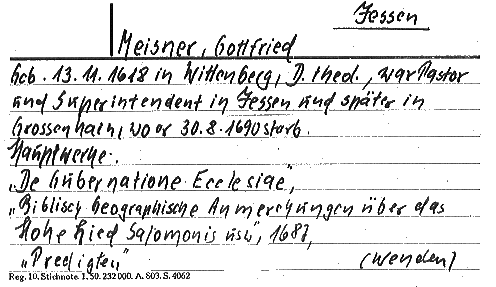 Jessen
Meisner, Gottfried
Geb. 13.11.1618 in Wittenberg, D. theol., war Pastor
und Superintendent in Jessen und später in
Grossenhain, wo er 30.8.1690 starb.
Hauptwerke:
„De Gubernatione Ecclesiae",
„Biblisch Geographische Anmerckungen über das
Hohe Lied Salomonis usw", 1687,
„Predigten" (wenden)
Reg. 10. Stichnote. I. 50. 232000. A. 803. S. 4062